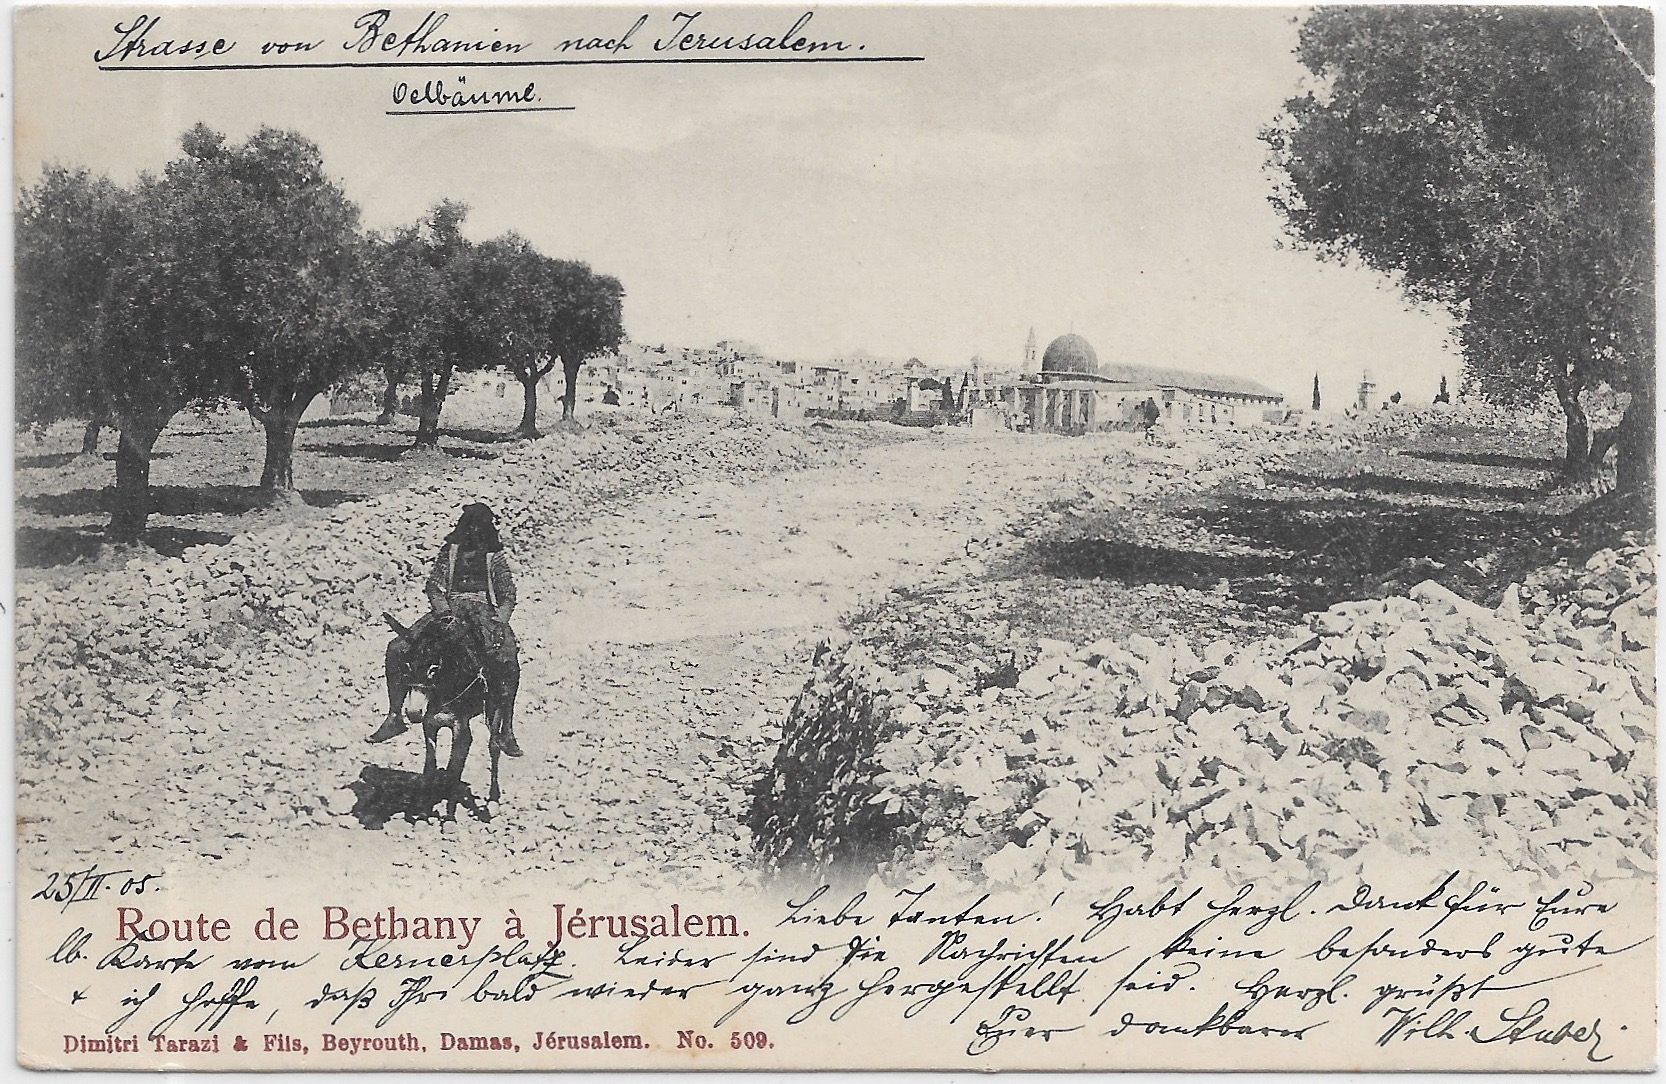 Strasse von Bethanien nach Jerusalem.
Oelbäume.
25/II. 05.
Route de Bethany à Jérusalem.
Liebe Tanten! Habt herzl. Dank für Eure
lb. Karte vom Kernerplatz. Leider sind die Nachrichten keine besonders gute
& ich hoffe, daß Ihr bald wieder ganz hergestellt seid. Herzl. grüßt
Euer dankbarer Wilh.
Dimitri Tarazi & Fils, Beyrouth, Damas, Jérusalem. No. 509.